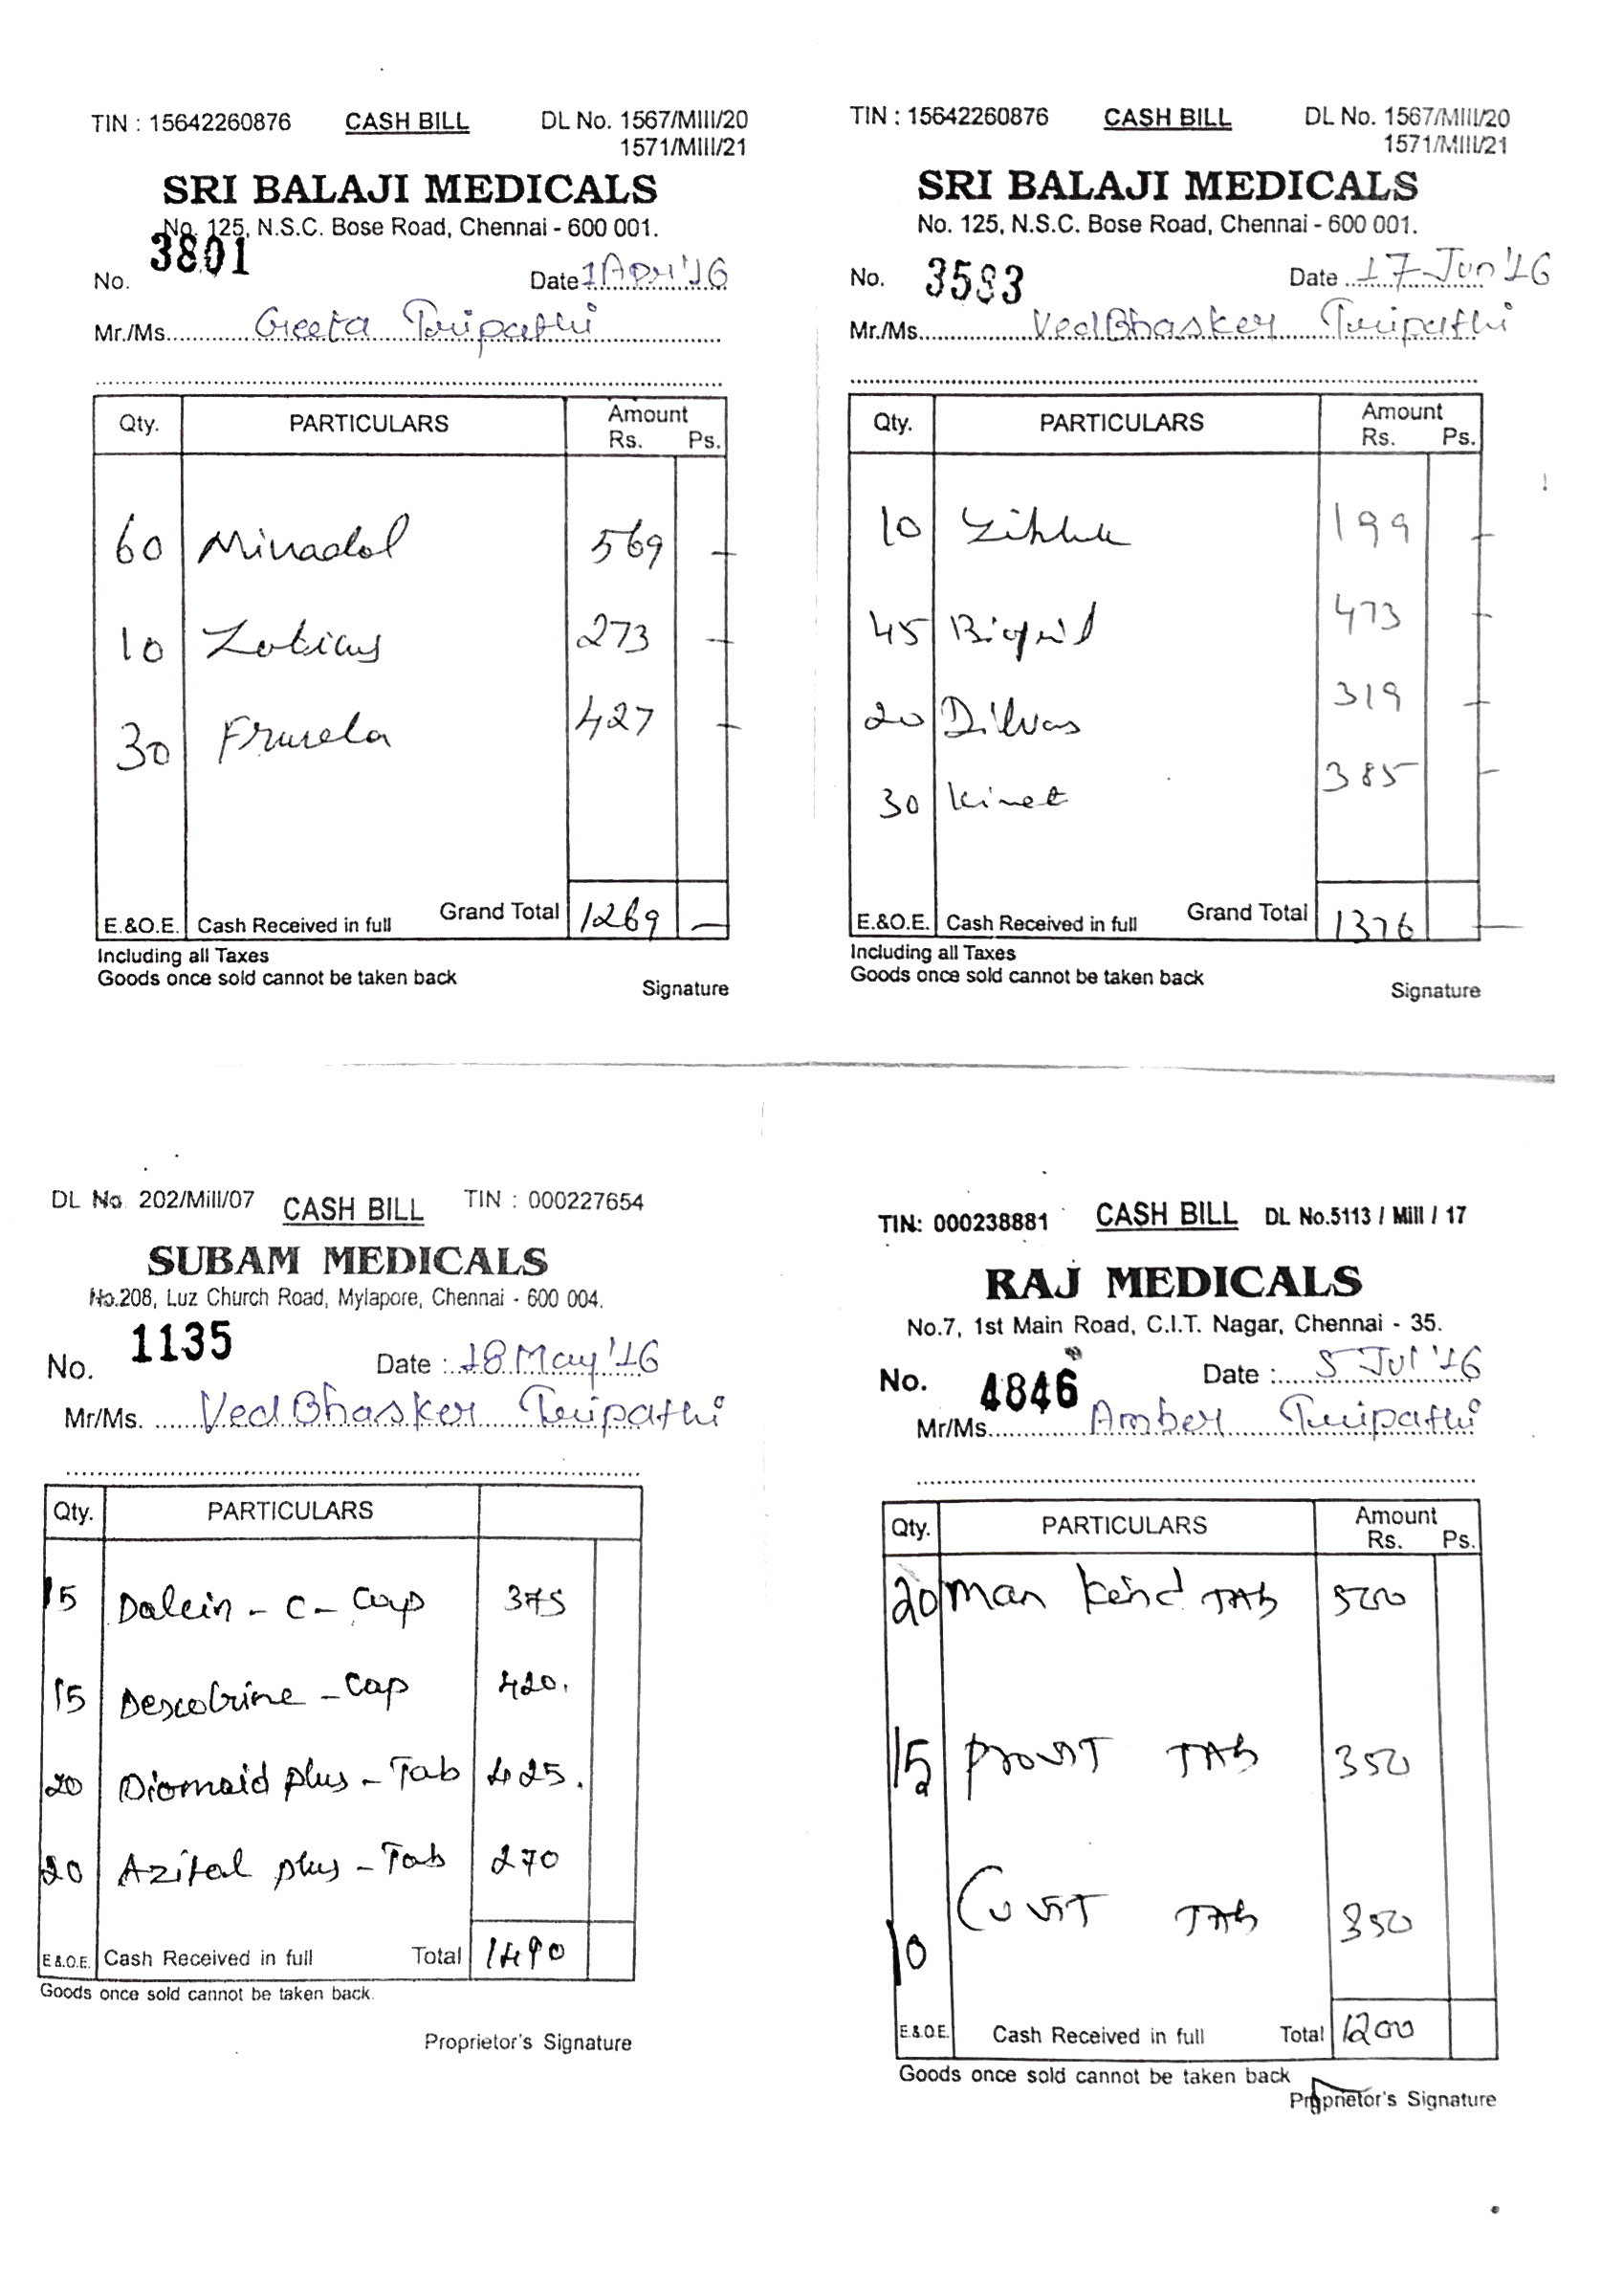 TIN : 15642260876 CASH BILL DL No. 1567/MIII/20
1571/MIII/21
SRI BALAJI MEDICALS
No. 125, N.S.C. Bose Road, Chennai - 600 001.
No. 3801 Date 1 Apr '16
Mr./Ms. Geeta Tripathi
Qty. PARTICULARS Amount
Rs. Ps.
60 Minadol 569 —
10 273 —
30 427 —
E.&O.E. Cash Received in full Grand Total 1269 —
Including all Taxes
Goods once sold cannot be taken back
Signature
TIN : 15642260876 CASH BILL DL No. 1567/MIII/20
1571/MIII/21
SRI BALAJI MEDICALS
No. 125, N.S.C. Bose Road, Chennai - 600 001.
No. 3583 Date 17-Jun'16
Mr./Ms. Ved Bhasker Tripathi
Qty. PARTICULARS Amount
Rs. Ps.
10 199 —
45 473 —
20 Dilvas 319 —
30 Kinet 385 —
E.&O.E. Cash Received in full Grand Total 1376 —
Including all Taxes
Goods once sold cannot be taken back
Signature
DL No 202/Mill/07 CASH BILL TIN : 000227654
SUBAM MEDICALS
No.208, Luz Church Road, Mylapore, Chennai - 600 004.
No. 1135 Date : 18 May '16
Mr/Ms. Ved Bhasker Tripathi
Qty. PARTICULARS
15 Dalcin - C - Cap 375
15 Descobrine - Cap 420.
20 Diomaid plus - Tab 425.
20 Azital plus - Tab 270
E.&.O.E. Cash Received in full Total 1490
Goods once sold cannot be taken back.
Proprietor's Signature
TIN: 000238881 CASH BILL DL No.5113 / Mill / 17
RAJ MEDICALS
No.7, 1st Main Road, C.I.T. Nagar, Chennai - 35.
No. 4846 Date : 5 Jul '16
Mr/Ms. Amber Tripathi
Qty. PARTICULARS Amount
Rs. Ps.
20 Man Kend TAB 500
15 TAB 350
10 TAB 350
E.&.O.E. Cash Received in full Total 1200
Goods once sold cannot be taken back
Proprietor's Signature